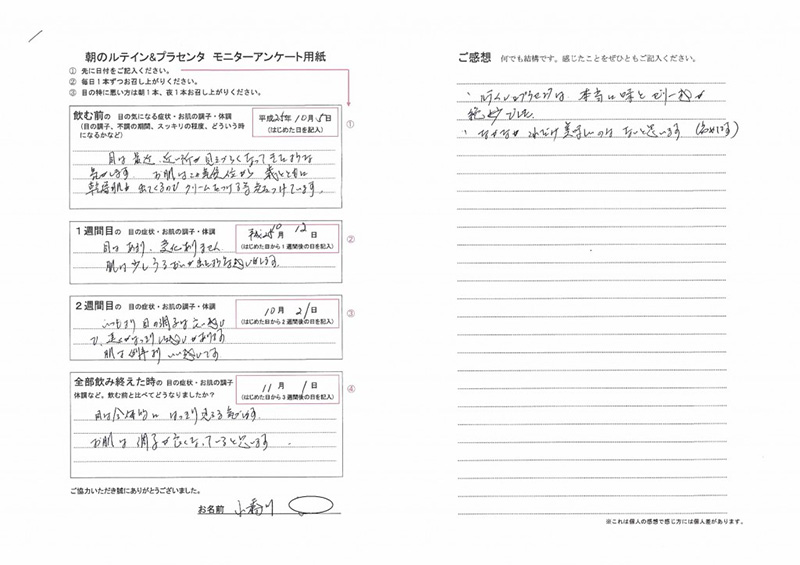 朝のルテイン&プラセンタ モニターアンケート用紙
① 先に日付をご記入ください。
② 毎日1本ずつお召し上がりください。
③ 目の特に悪い方は朝1本、夜1本お召し上がりください。
飲む前の 目の気になる症状・お肌の調子・体調
(目の調子、不調の期間、スッキリの程度、どういう時になるかなど)
平成25年10月5日
(はじめた日を記入)
①
目は最近、近い所が見えづらくなってきたような
気がします。お肌はこの季節 から 歳とともに
乾燥肌も出てくるので クリームをつける 気をつけています。
1週間目の 目の症状・お肌の調子・体調
10月 12日
(はじめた日から1週間後の日を記入)
②
目は あまり、変化ありません
肌は少しうるおいが
2週間目の 目の症状・お肌の調子・体調
10月 21日
(はじめた日から2週間後の日を記入)
③
いつもより 目の調子は
肌は いい感じです
全部飲み終えた時の 目の症状・お肌の調子
体調など。飲む前と比べてどうなりましたか?
11月 1日
(はじめた日から3週間後の日を記入)
④
目は全体的に はっきり見える気がします。
お肌は 調子が良くなっていると思います。
ご協力いただき誠にありがとうございました。
お名前
ご感想 何でも結構です。感じたことをぜひともご記入ください。
・ルテイン&プラセンタは、本当に味と ゼリー感が
絶妙でした。
・なかなか これだけ美味しいのは ないと思います
※これは個人の感想で感じ方には個人差があります。